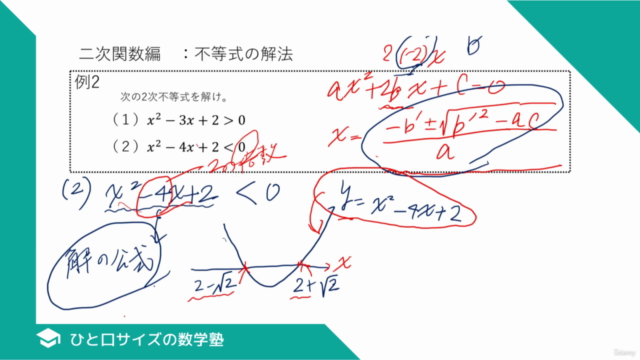 二次関数編 ：不等式の解法
2(-2)x b
例2
次の2次不等式を解け。
ax²+2b'x+c=0
（1） x² − 3x + 2 > 0
（2） x² − 4x + 2 < 0
x= -b'±√b'²-ac / a
2の倍数
(2) x²-4x+2 < 0
y=x²-4x+2
解の公式
x
2-√2 2+√2
ひと口サイズの数学塾